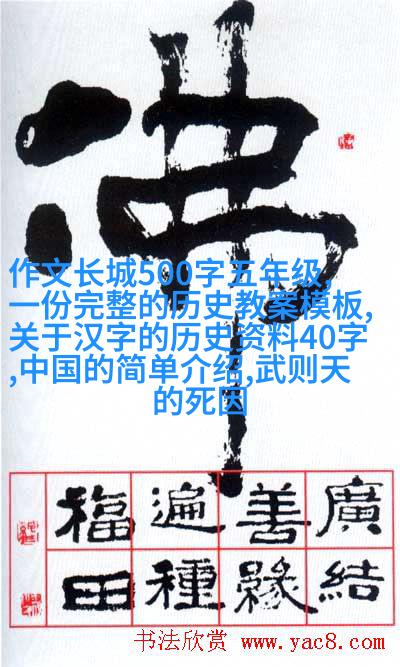 佛
作文长城500字五年级,
一份完整的历史教案模板,
关于汉字的历史资料40字
,中国的简单介绍,武则天
的死因
廣結
善緣
遍種
福田
书法欣赏 www.yac8.com